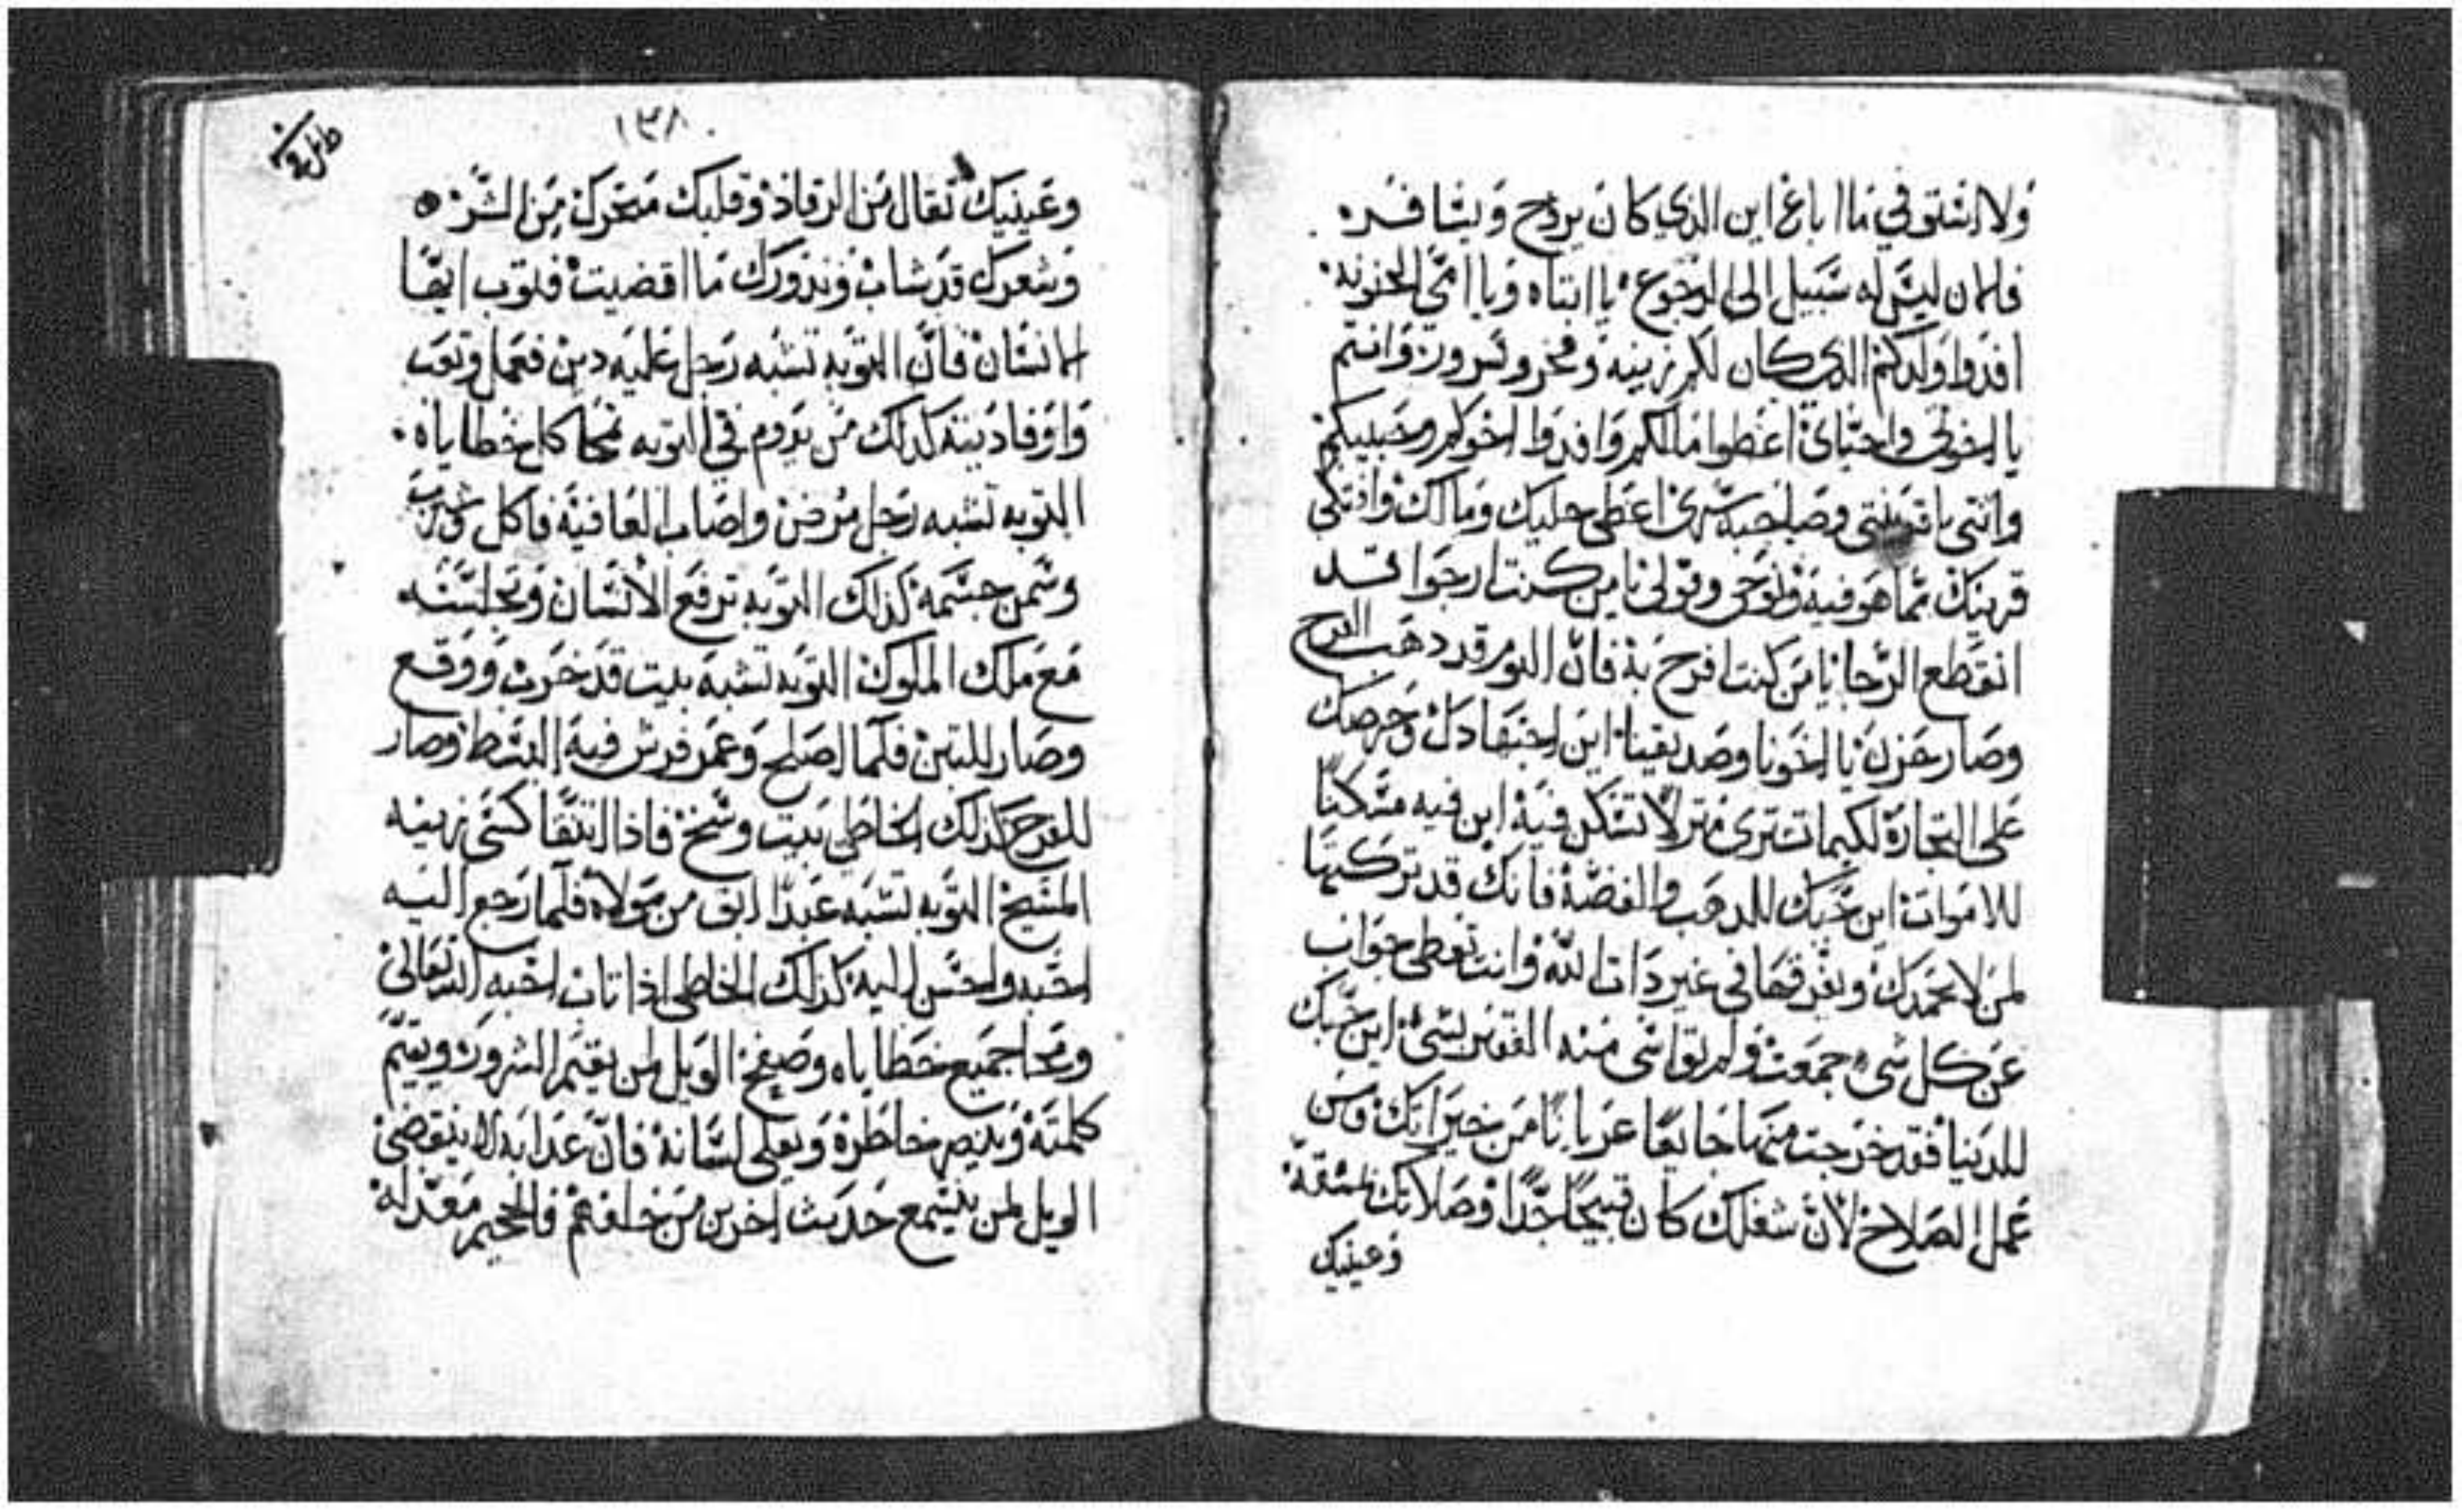 ولا اشتوفي ما اباع اين الذي كان يربح ويسافر
فلمان ليس له سبيل الى الرجوع يا ابتاه ويا امي الحنونه
افدوا ولدكم الذي كان لكم زينه وفخر وسرور وانتم
يا اخوتي واحباي اعطوا مالكم وافدوا اخوكم وحبيبكم
وانتي يا قرينتي وصاحبة سري اعطي حليك ومالك وافتكي
قرينك مما هو فيه ونوحي وقولي يا من كنت ارجوا قد
انقطع الرجا يا من كنت افرح به فان اليوم قد ذهب الفرح
وصار حزن يا اخونا وصديقنا اين اجتهادك وحرصك
على التجارة لكيما تشتري منزلا تسكن فيه اين فيه مسكنا
للاموات اين حبك للذهب والفضة فانك قد تركتها
لمن لا يحمدك ويفرقها في غير ذات الله وانت تعطي جواب
عن كل شيء جمعت ولم تواسي منه الفقير بشيء اين حبك
للدنيا فقد خرجت منها جايعا عريانا من خيراتك ومن
عمل الصلاح لان شغلك كان قبيحا جدا وصلاتك بمشقة
وعينيك
١٣٨
وعينيك ثقال من الرقاد وقلبك متحرك من الشر
وشعرك قد شاب ونذورك ما اقضيت فلتوب ايها
الانسان فان التوبه تشبه رجل عليه دين فعمل وتعب
واوفا دينه كذلك من يدوم في التوبه تمحا كل خطاياه
التوبه تشبه رجل مرض واصاب العافية فاكل وشرب
وسمن جسمه كذلك التوبه ترفع الانسان وتجلسه
مع ملك الملوك التوبه تشبه بيت قد خرب ووقع
وصار للتبن فلما اصلح وعمر فرش فيه البسط وصار
للفرح كذلك الخاطي بيت وسخ فاذا انتقا كسي زينه
المسيح التوبه تشبه عبدا ابق من مولاه فلما رجع اليه
احبه واحسن اليه كذلك الخاطي اذا تاب احبه الله تعالى
ومحا جميع خطاياه وصفح الويل لمن يقيم الشرور ويتيم
كلمته ويبصر خاطره ويعلي لسانه فان عذابه لا ينقضي
الويل لمن يستمع حديث اخرين من خلفهم فالجحيم معد له